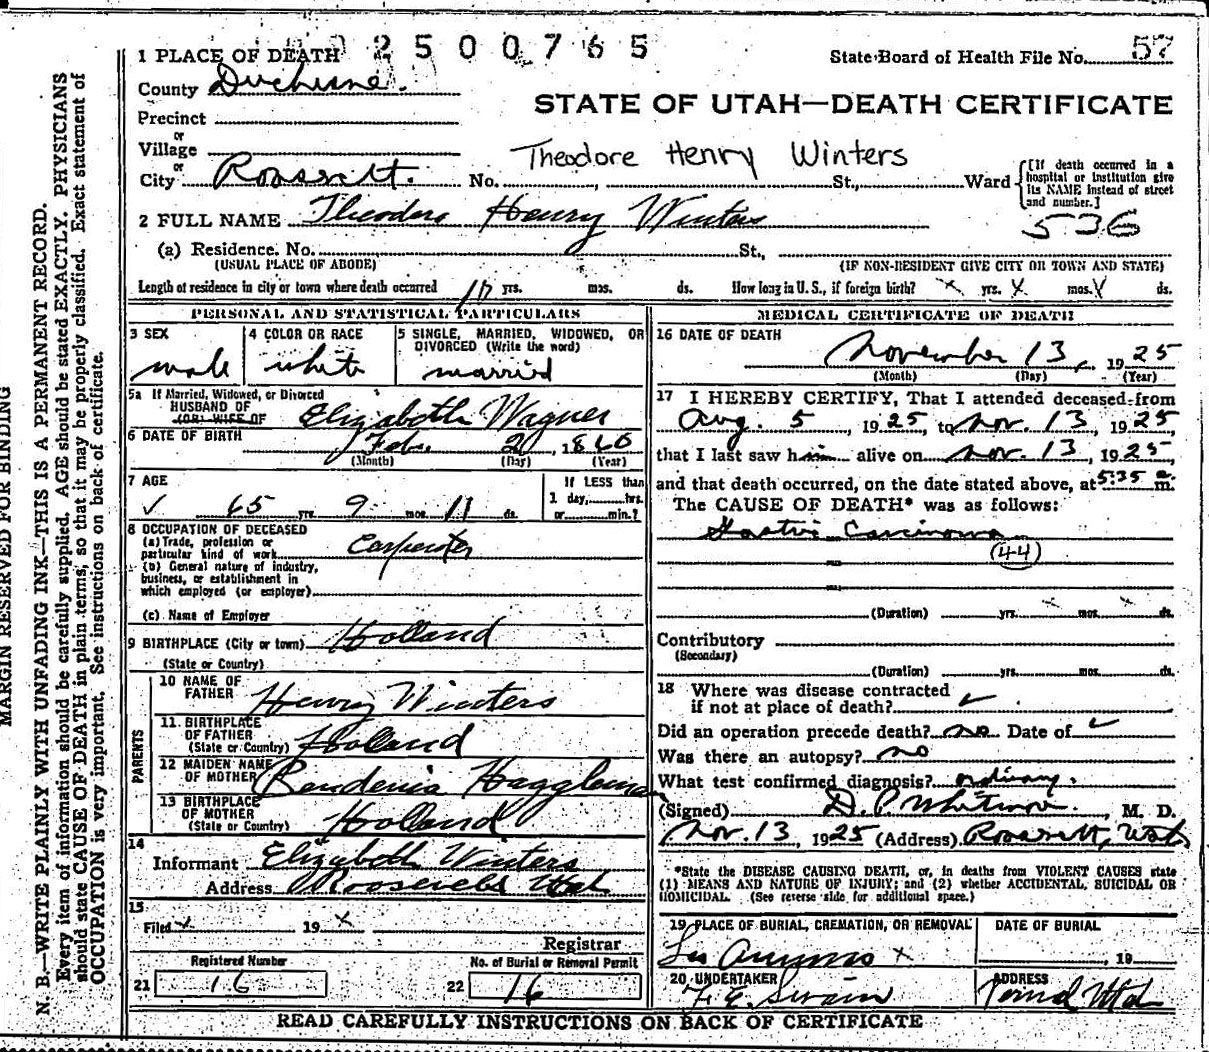 2500765
1 PLACE OF DEATH
State Board of Health File No. 57
County Duchesne.
STATE OF UTAH—DEATH CERTIFICATE
Precinct
or
Village
Theodore Henry Winters
or
City Roosevelt. No. , St., Ward
[If death occurred in a hospital or institution give its NAME instead of street and number.]
2 FULL NAME Theodore Henry Winters
536
(a) Residence. No. St.,
(USUAL PLACE OF ABODE) (IF NON-RESIDENT GIVE CITY OR TOWN AND STATE)
Length of residence in city or town where death occurred yrs. mos. ds. How long in U. S., if foreign birth? x yrs. x mos. ds.
PERSONAL AND STATISTICAL PARTICULARS
3 SEX
male
4 COLOR OR RACE
white
5 SINGLE, MARRIED, WIDOWED, OR DIVORCED (Write the word)
married
5a If Married, Widowed, or Divorced
HUSBAND OF
(OR) WIFE OF Elizabeth Wagner
6 DATE OF BIRTH Feb. 2 1860
(Month) (Day) (Year)
7 AGE
65 yrs 9 mos. 11 ds.
If LESS than
1 day, hrs.
or min.?
8 OCCUPATION OF DECEASED
(a) Trade, profession or
particular kind of work Carpenter
(b) General nature of industry,
business, or establishment in
which employed (or employer)
(c) Name of Employer
9 BIRTHPLACE (City or town) Holland
(State or Country)
PARENTS
10 NAME OF
FATHER Henry Winters
11 BIRTHPLACE
OF FATHER
(State or Country) Holland
12 MAIDEN NAME
OF MOTHER
13 BIRTHPLACE
OF MOTHER
(State or Country) Holland
14
Informant Elizabeth Winters
Address Roosevelt Utah
15
Filed x 19 x
Registrar
Registered Number
21 16
No. of Burial or Removal Permit
22 16
MEDICAL CERTIFICATE OF DEATH
16 DATE OF DEATH
November 13, 1925
(Month) (Day) (Year)
17 I HEREBY CERTIFY, That I attended deceased from
Aug. 5, 1925, to Nov. 13, 1925,
that I last saw him alive on Nov. 13, 1925,
and that death occurred, on the date stated above, at 5:35 a m.
The CAUSE OF DEATH* was as follows:
Gastric Carcinoma
(44)
(Duration) yrs. x mos. x ds.
Contributory
(Secondary)
(Duration) yrs. mos. ds.
18 Where was disease contracted
if not at place of death?
Did an operation precede death? no Date of
Was there an autopsy? no
What test confirmed diagnosis? ordinary.
(Signed) D. P. Whitmore. , M. D.
Nov. 13, 1925 (Address) Roosevelt, Utah
*State the DISEASE CAUSING DEATH, or, in deaths from VIOLENT CAUSES state
(1) MEANS AND NATURE OF INJURY; and (2) whether ACCIDENTAL, SUICIDAL OR
HOMICIDAL. (See reverse side for additional space.)
19 PLACE OF BURIAL, CREMATION, OR REMOVAL
x
DATE OF BURIAL
, 19
20 UNDERTAKER
F. E. Swain
ADDRESS
Vernal Utah
READ CAREFULLY INSTRUCTIONS ON BACK OF CERTIFICATE
MARGIN RESERVED FOR BINDING
N. B.—WRITE PLAINLY WITH UNFADING INK—THIS IS A PERMANENT RECORD.
Every item of information should be carefully supplied. AGE should be stated EXACTLY. PHYSICIANS
should state CAUSE OF DEATH in plain terms, so that it may be properly classified. Exact statement of
OCCUPATION is very important. See instructions on back of certificate.